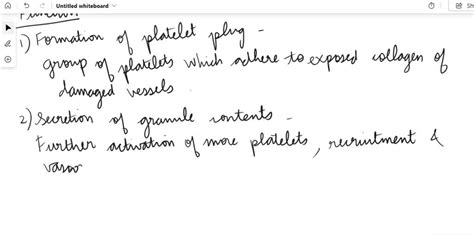 Untitled whiteboard
Function
1) Formation of platelet plug -
group of platelets which adhere to exposed collagen of
damaged vessels
2) Secretion of granule contents -
Further activation of more platelets, recruintment &